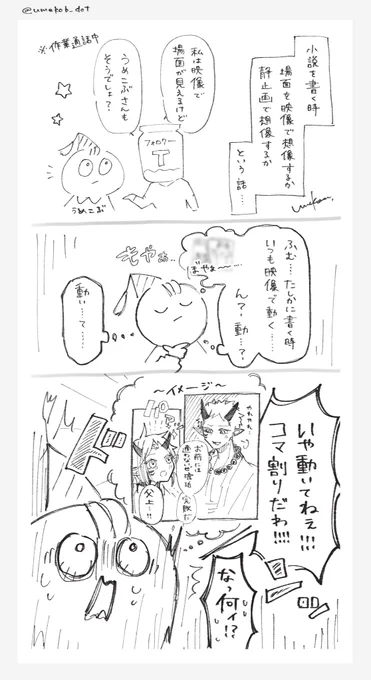 @umekob_dot
小説を書く時
場面を映像で想像するか
静止画で想像するか
という話…
※作業通話中
私は映像で
場面が見えるけど
うめこぶさんも
そうでしょ？
フォロワー
T
うめこぶ
ふむ…たしかに書く時
いつも映像で動く……
ん？動…？
ぼやぁ〜…
もやぁ…
動…て……
いや動いてねぇ!!!
コマ割りだわ!!!!
〜イメージ〜
お前には
完敗だ
父上!!
なっ何ィ!?